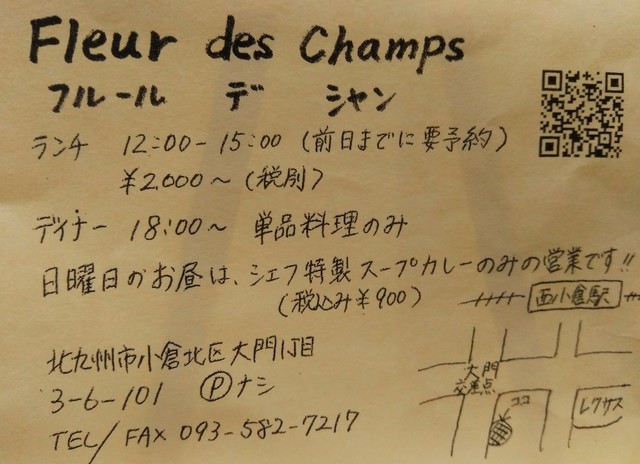 Fleur des Champs
フルール デ シャン
ランチ 12:00-15:00 (前日までに要予約)
¥2,000~ (税別)
ディナー 18:00~ 単品料理のみ
日曜日のお昼は、シェフ特製スープカレーのみの営業です!!
(税込み¥900)
西小倉駅
北九州市小倉北区大門1丁目
3-6-101 Ⓟナシ
TEL/FAX 093-582-7217
大門
交差点
ココ
レクサス